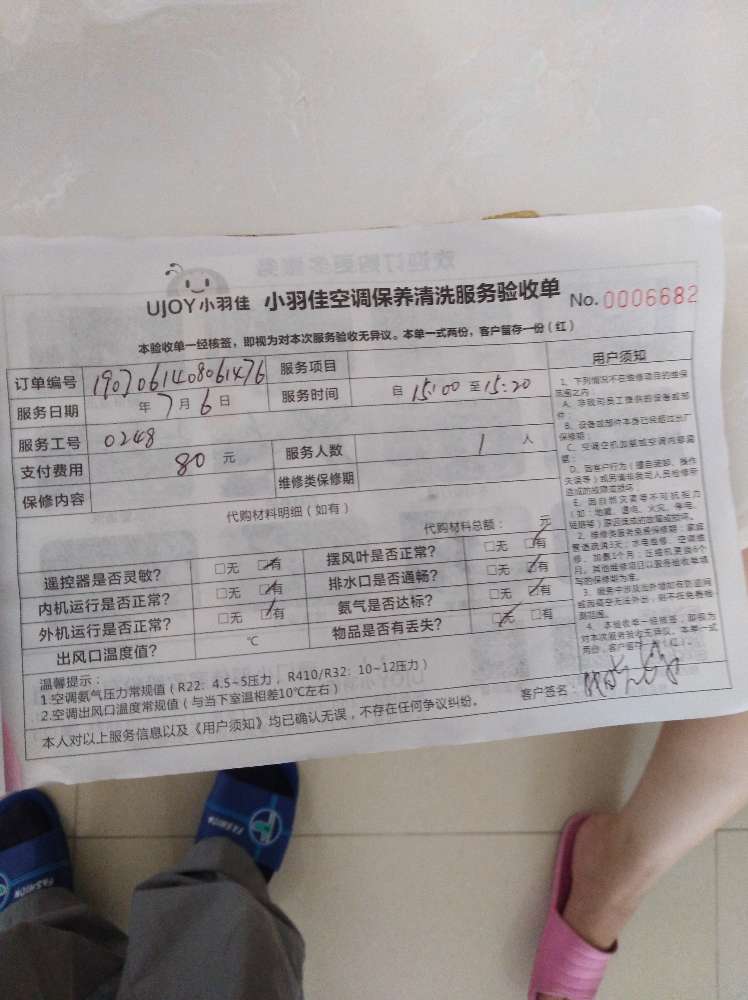 UJOY小羽佳 小羽佳空调保养清洗服务验收单 No.0006682
本验收单一经核签，即视为对本次服务验收无异议。本单一式两份，客户留存一份（红）
订单编号 1907061408061476 服务项目
服务日期 年 7 月 6 日 服务时间 自 15:00 至 15:20
服务工号 0248
支付费用 80 元 服务人数 1 人
保修内容 维修类保修期
代购材料明细（如有）
代购材料总额： 元
遥控器是否灵敏？ □无 □有 摆风叶是否正常？ □无 □有
内机运行是否正常？ □无 □有 排水口是否通畅？ □无 □有
外机运行是否正常？ □无 □有 氨气是否达标？ □无 □有
出风口温度值？ ℃ 物品是否有丢失？ □无 □有
温馨提示：
1.空调氨气压力常规值（R22：4.5~5压力，R410/R32：10~12压力）
2.空调出风口温度常规值（与当下室温相差10℃左右）
客户签名：
本人对以上服务信息以及《用户须知》均已确认无误，不存在任何争议纠纷。
用户须知
1、下列情况不在维修项目的维保
范围之内：
A、非我司员工提供的设备或部
件；
B、设备或部件本身已经超过出厂
保修期；
D、因客户行为（擅自拆卸、操作
失误等）或另请非我司人员检修所
造成的故障或损坏；
E、因自然灾害等不可抗拒力
（如：地震、雷电、火灾、停电、
2、维修类服务免费保修期：家庭
管道疏通3天；水电维修、空调维
修、加氨1个月；压缩机更换6个
月。其他维修项目以服务验收单填
写的保修期为准。
4、本验收单一经核签，即视为
对本次服务验收无异议。本单一式
两份，客户留存一份（红）。
FASHION